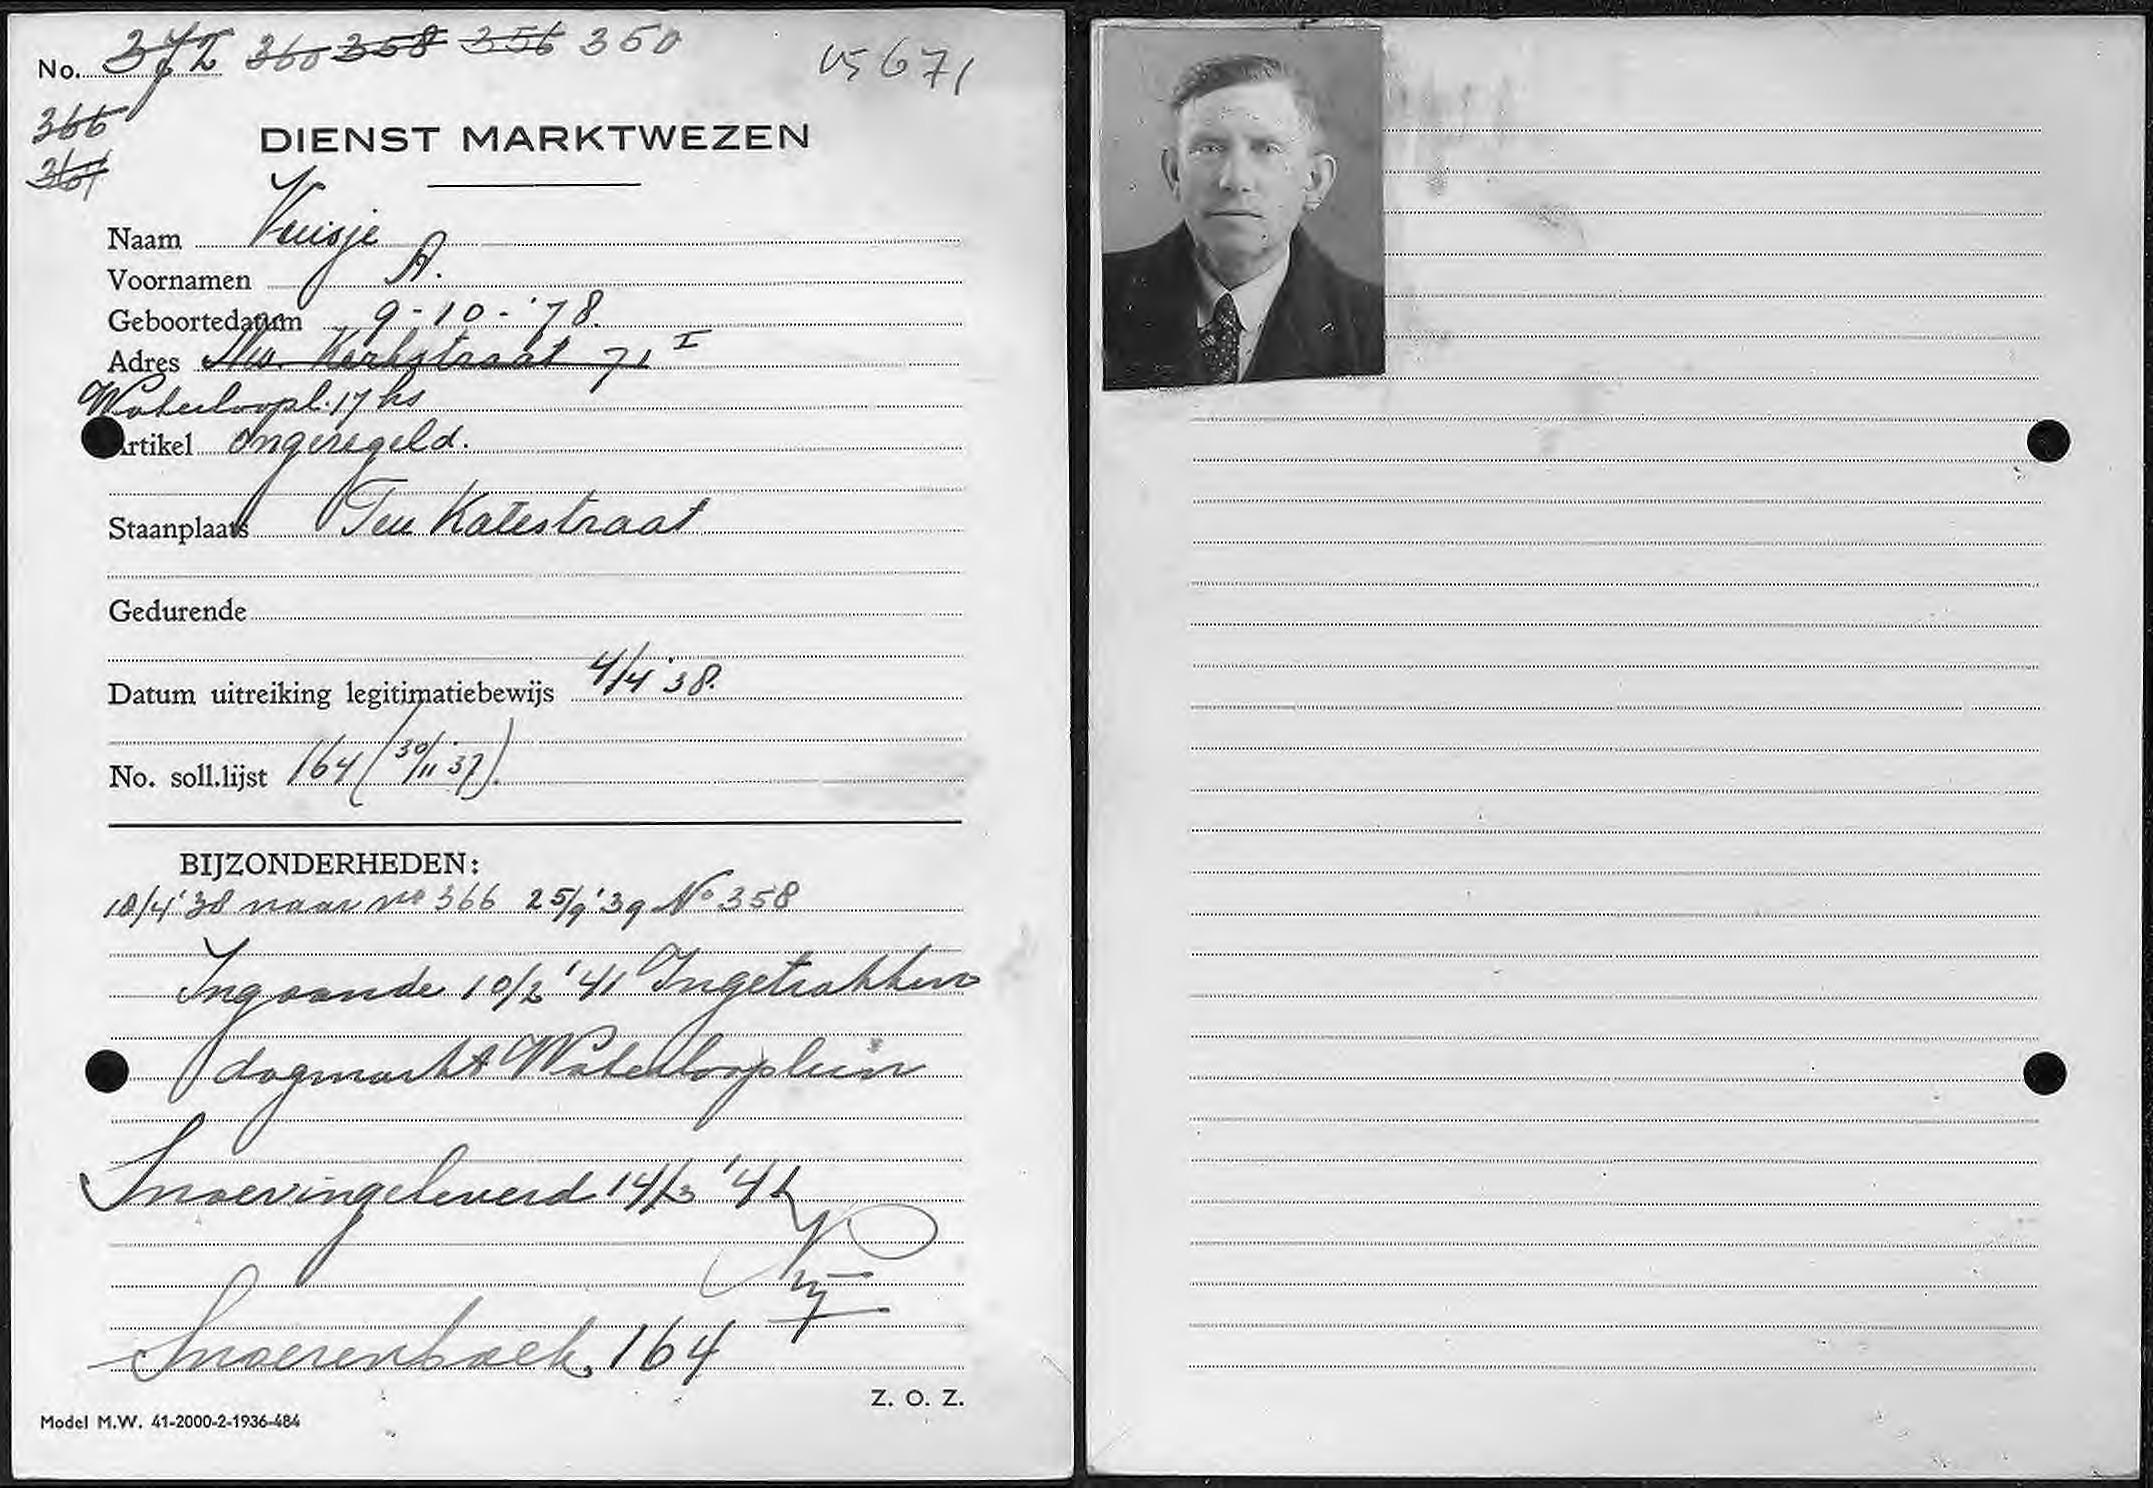 No. 372 360 358 356 350
V5671
366
364
DIENST MARKTWEZEN
Naam Vuisje
Voornamen A.
Geboortedatum 9-10-'78.
Adres Nw. Kerkstraat 71 I
Waterloopl. 17 hs
Artikel ongeregeld.
Staanplaats Ten Katestraat
Gedurende
Datum uitreiking legitimatiebewijs 4/4'38.
No. soll.lijst 164 (30/11 37).
BIJZONDERHEDEN:
18/4'38 naar no 366 25/9'39 No 358
Ingaande 10/2 '41 Ingetrokken
dagmarkt Waterlooplein
Snoeringeleverd 14/3 '41
Snoerenboek 164
Z. O. Z.
Model M.W. 41-2000-2-1936-484